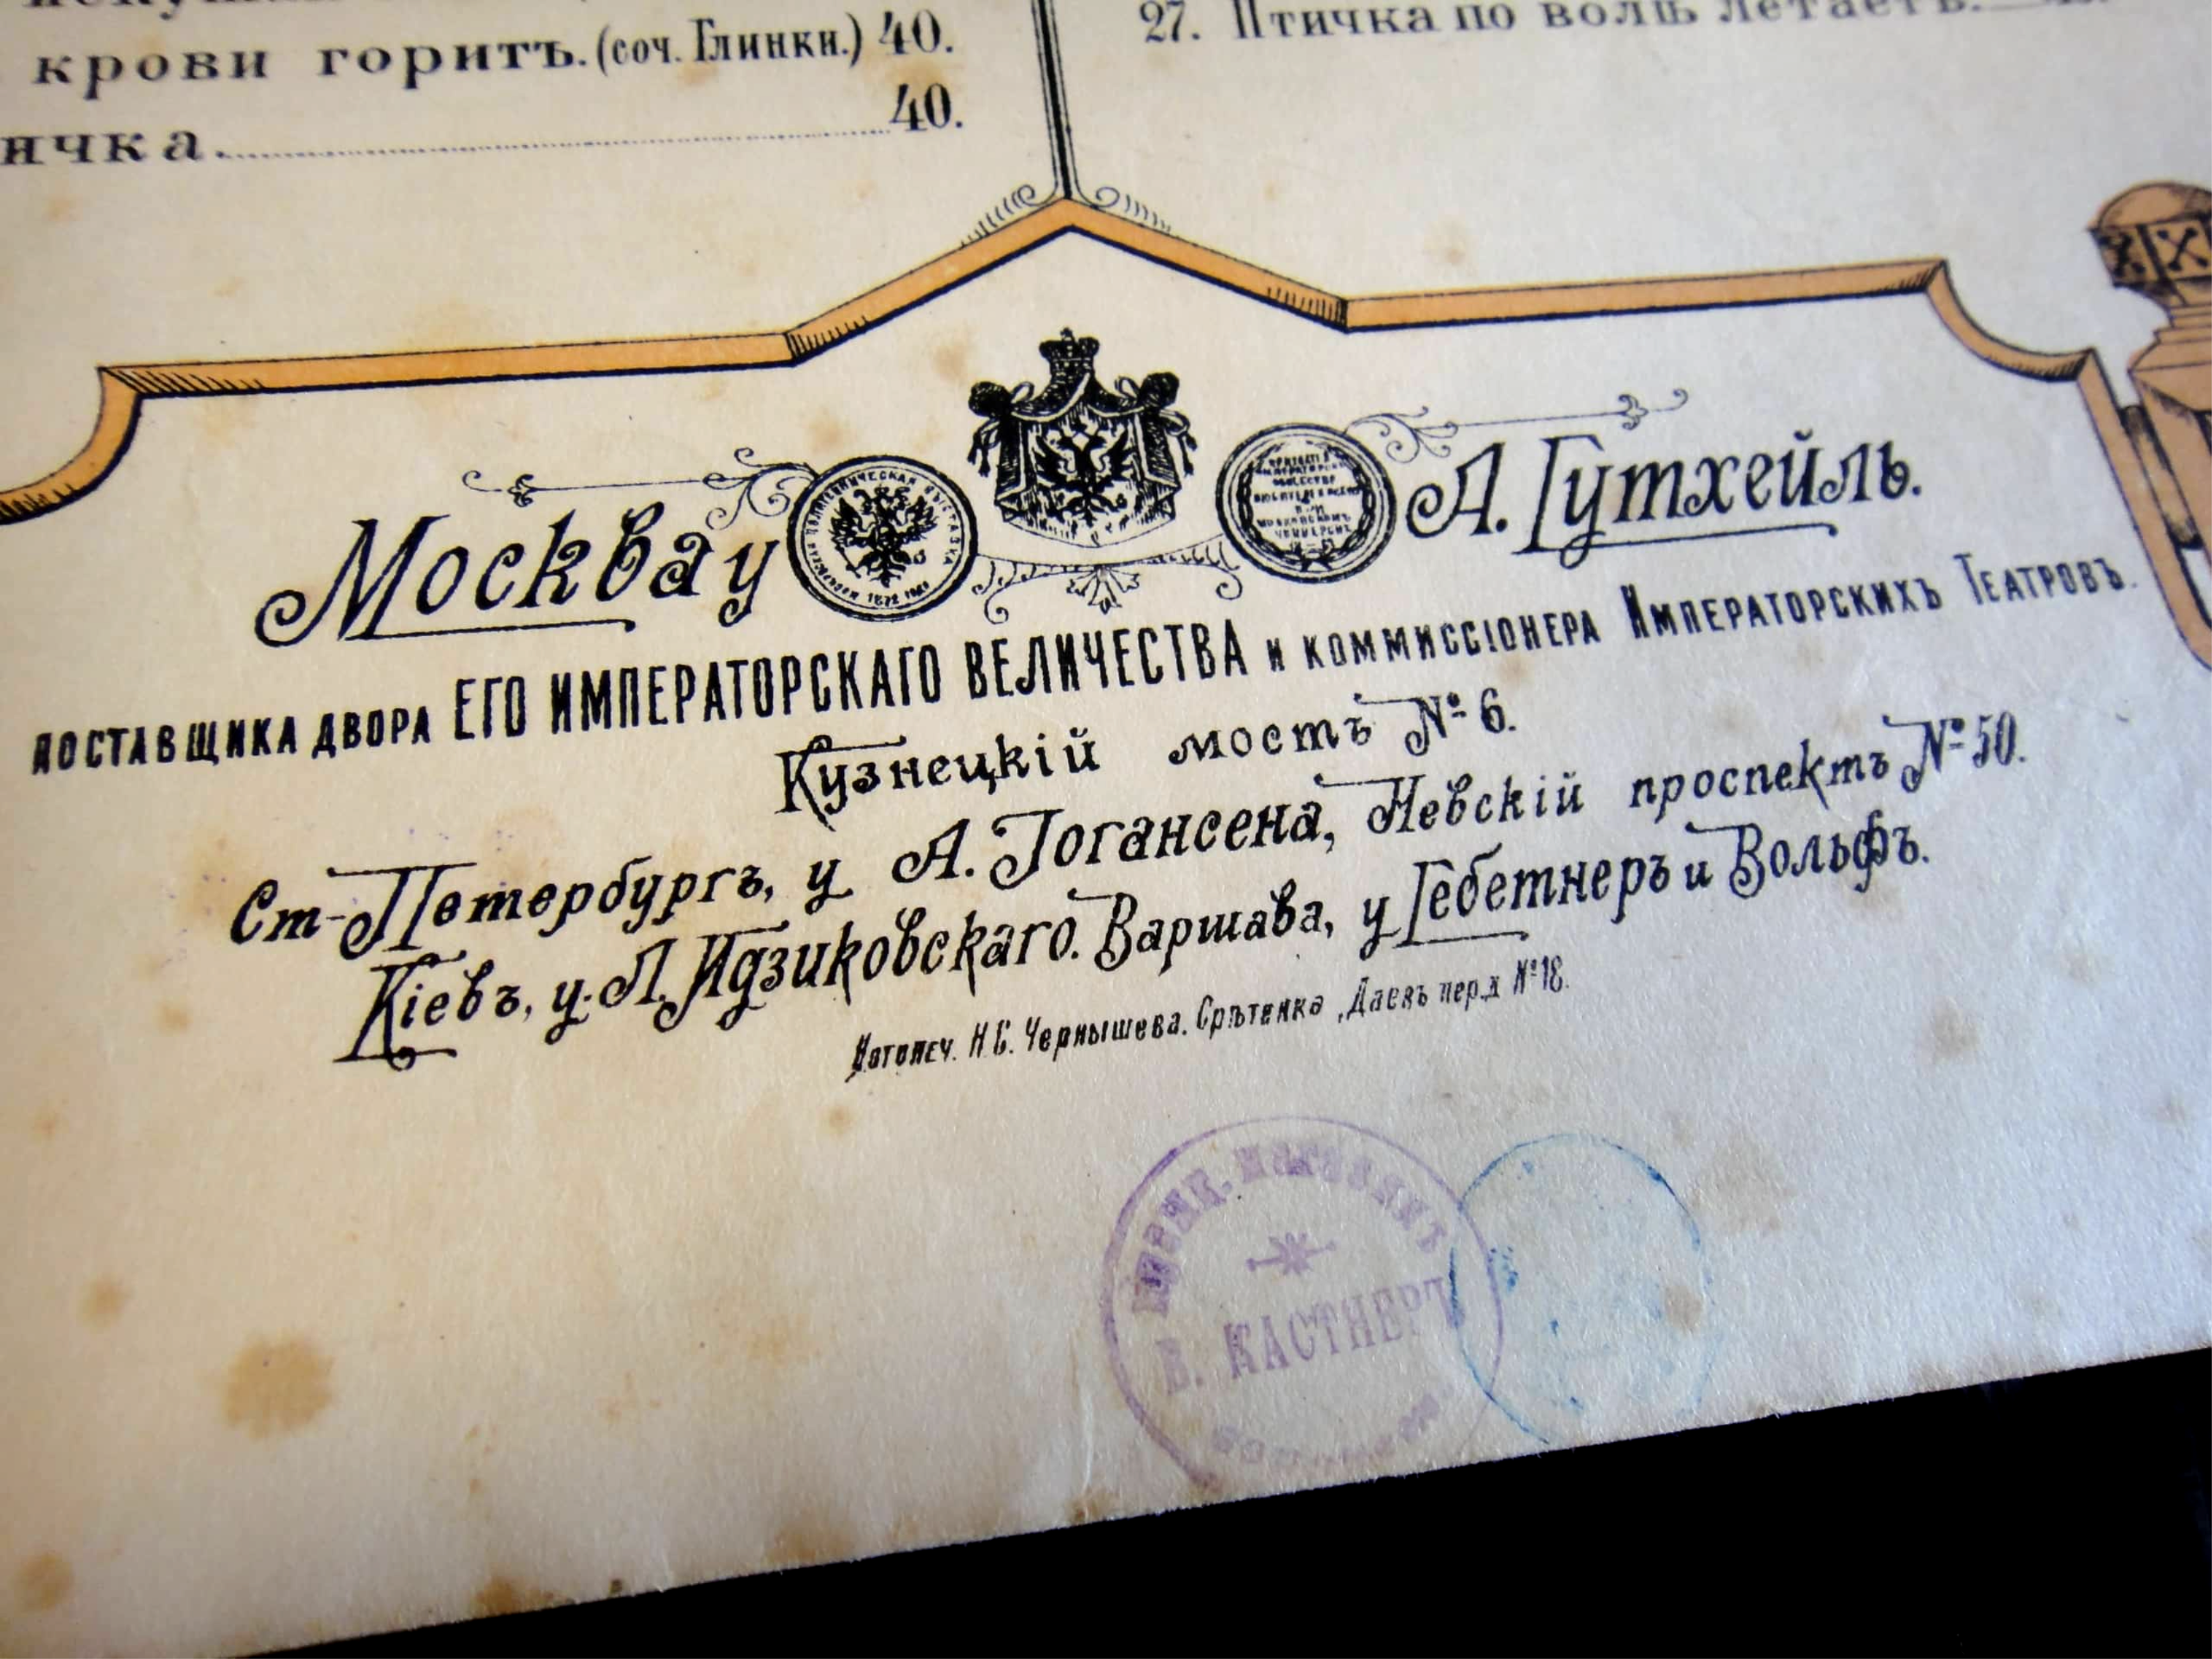 крови горитъ. (соч. Глинки.) 40.
ичка. 40.
27. Птичка по волѣ летаетъ.
Москва у А. Гутхейль.
ПОСТАВЩИКА ДВОРА ЕГО ИМПЕРАТОРСКАГО ВЕЛИЧЕСТВА И КОММИССІОНЕРА ИМПЕРАТОРСКИХЪ ТЕАТРОВЪ.
Кузнецкій мостъ № 6.
Ст-Петербургъ, у А. Іогансена, Невскій проспектъ № 50.
Кіевъ, у Л. Идзиковскаго. Варшава, у Гебетнеръ и Вольфъ.
Нотопеч. Н.С. Чернышева. Срѣтенка, Даевъ пер. д. № 18.
магазинъ
В. КАСТНЕРЪ